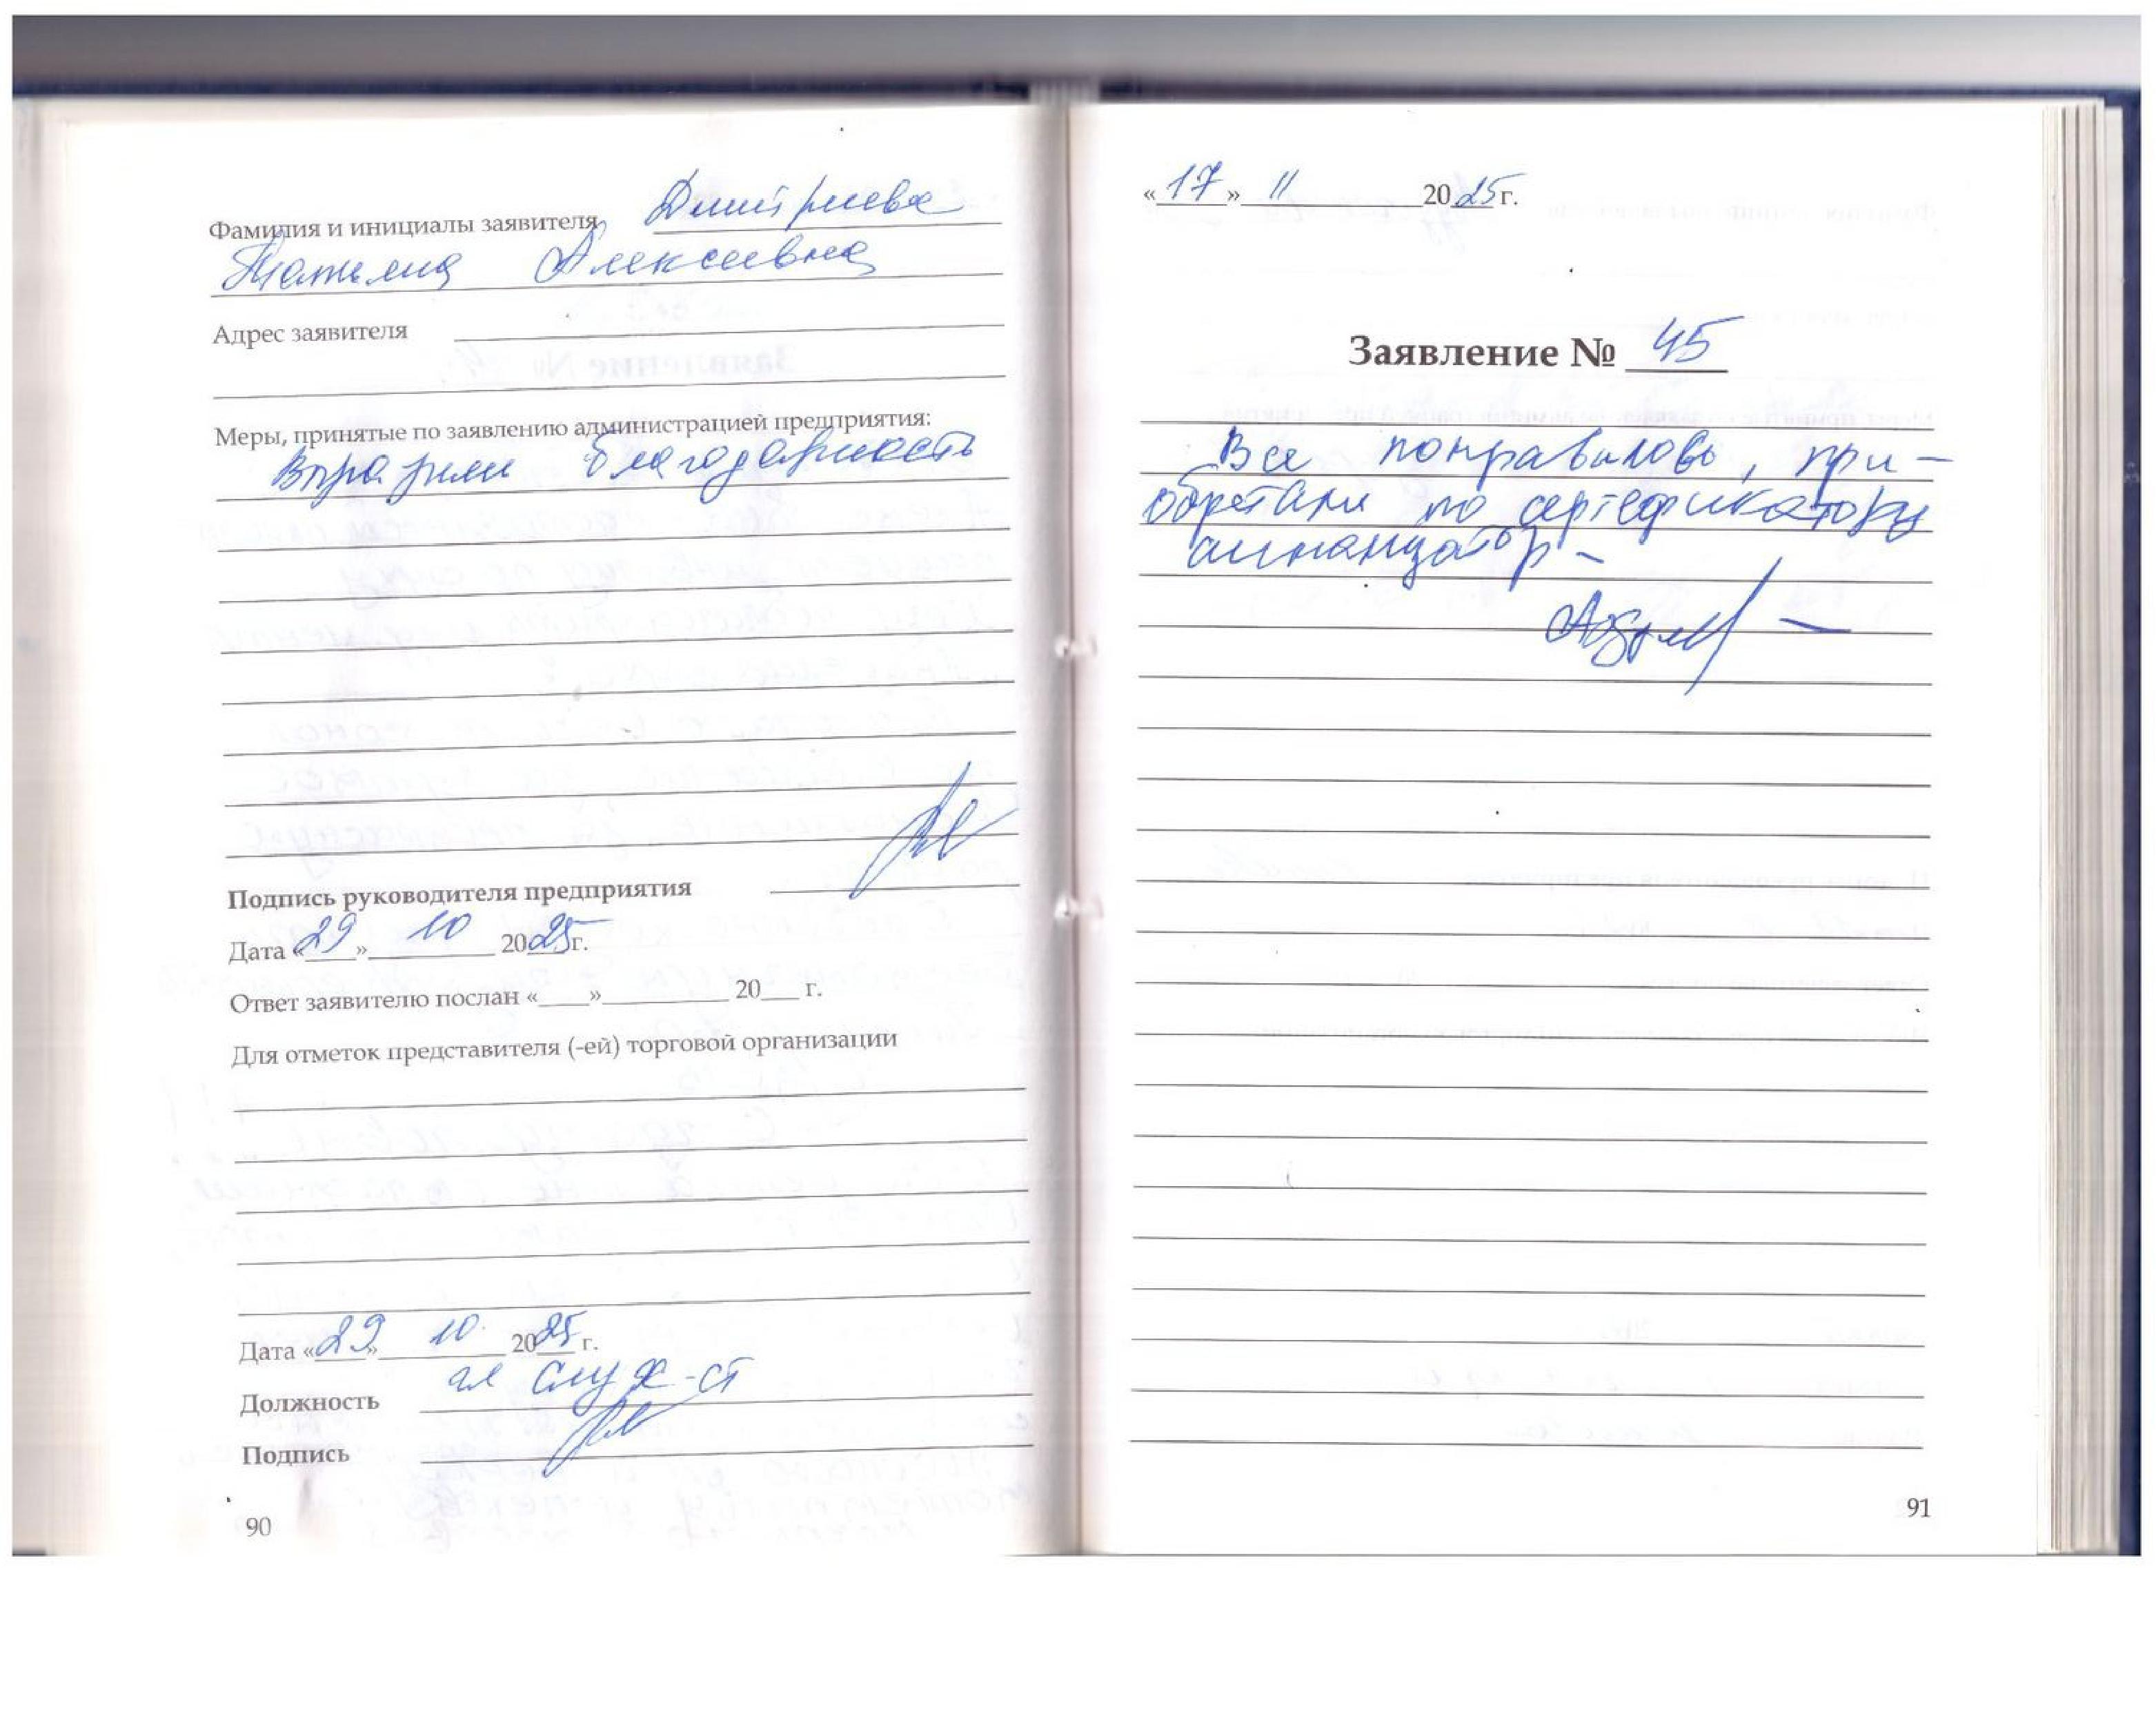 Фамилия и инициалы заявителя Дмитриева
Татьяна Алексеевна
Адрес заявителя
Меры, принятые по заявлению администрацией предприятия:
благодарность
Подпись руководителя предприятия
Дата «29» 10 2025г.
Ответ заявителю послан «___»_________ 20___ г.
Для отметок представителя (-ей) торговой организации
Дата «29» 10 2025 г.
Должность гл
Подпись
90
«17» 11 2025г.
Заявление № 45
Все понравилось, при-
обретали по
91